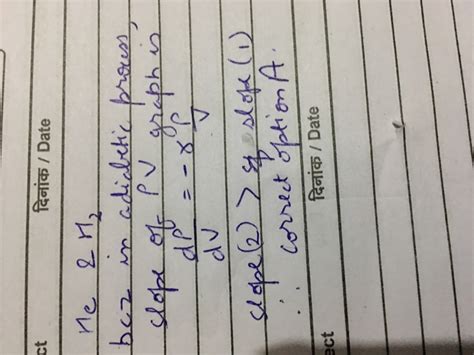 दिनांक / Date
He & H2
bcz in adiabetic process,
slope of PV graph is
dP/dV = -γ P/V
slope(2) > slope(1)
∴ correct option A.
दिनांक / Date
ect
ect